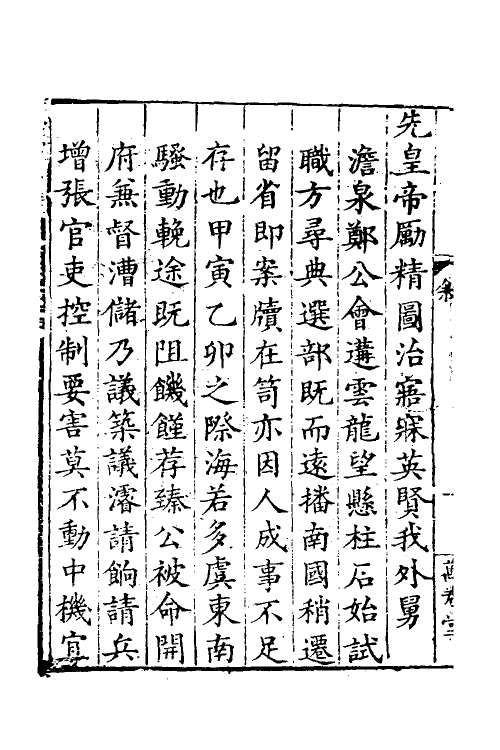 先皇帝勵精圖治寤寐英賢我外舅
澹泉鄭公會遘雲龍望懸柱石始試
職方尋典選部既而遠播南國稍遷
留省即案牘在笥亦因人成事不足
存也甲寅乙卯之際海若多虞東南
騷動輓途既阻饑饉荐臻公被命開
府兼督漕儲乃議築議濬請餉請兵
增張官吏控制要害莫不動中機宜
一
萬卷堂